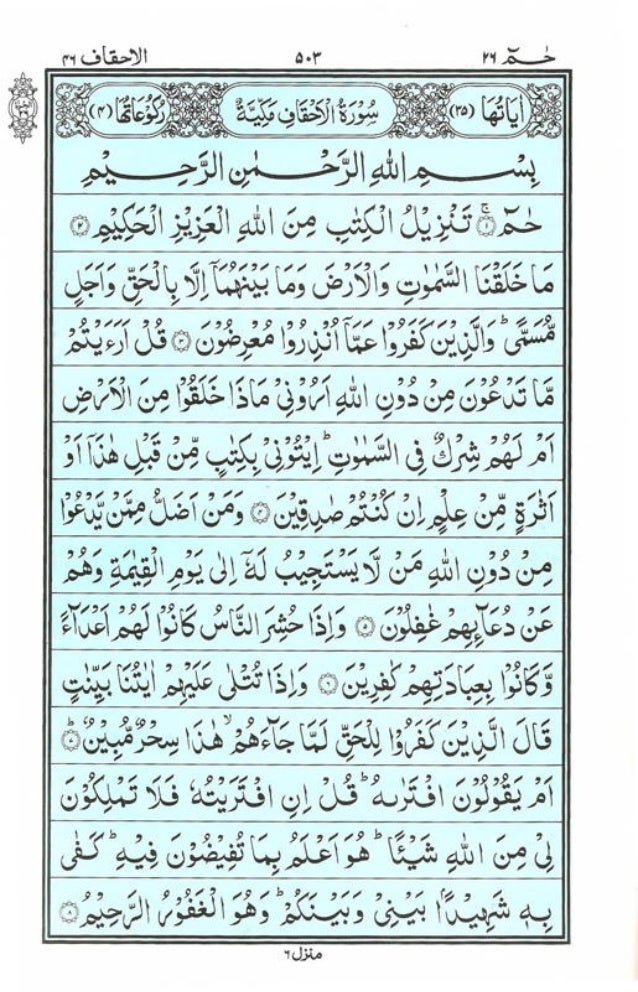 الاحقاف ۴۶ ۵۰۳ حٰمٓ ۲۶
اٰيَاتُهَا (۳۵) سُوْرَةُ الْاَحْقَافِ مَكِّيَّةٌ رُكُوْعَاتُهَا (۴)
بِسْمِ اللهِ الرَّحْمٰنِ الرَّحِيْمِ
حٰمٓ ۚ‏﴿۱﴾ تَنْزِيْلُ الْكِتٰبِ مِنَ اللهِ الْعَزِيْزِ الْحَكِيْمِ ﴿۲﴾
مَا خَلَقْنَا السَّمٰوٰتِ وَالْاَرْضَ وَمَا بَيْنَهُمَاۤ اِلَّا بِالْحَقِّ وَاَجَلٍ
مُّسَمًّىؕ وَالَّذِيْنَ كَفَرُوْا عَمَّاۤ اُنْذِرُوْا مُعْرِضُوْنَ ﴿۳﴾ قُلْ اَرَءَيْتُمْ
مَّا تَدْعُوْنَ مِنْ دُوْنِ اللهِ اَرُوْنِيْ مَاذَا خَلَقُوْا مِنَ الْاَرْضِ
اَمْ لَهُمْ شِرْكٌ فِى السَّمٰوٰتِؕ اِيْتُوْنِيْ بِكِتٰبٍ مِّنْ قَبْلِ هٰذَاۤ اَوْ
اَثٰرَةٍ مِّنْ عِلْمٍ اِنْ كُنْتُمْ صٰدِقِيْنَ ﴿۴﴾ وَمَنْ اَضَلُّ مِمَّنْ يَّدْعُوْا
مِنْ دُوْنِ اللهِ مَنْ لَّا يَسْتَجِيْبُ لَهٗۤ اِلٰى يَوْمِ الْقِيٰمَةِ وَهُمْ
عَنْ دُعَآئِهِمْ غٰفِلُوْنَ ﴿۵﴾ وَاِذَا حُشِرَ النَّاسُ كَانُوْا لَهُمْ اَعْدَآءً
وَّكَانُوْا بِعِبَادَتِهِمْ كٰفِرِيْنَ ﴿۶﴾ وَاِذَا تُتْلٰى عَلَيْهِمْ اٰيٰتُنَا بَيِّنٰتٍ
قَالَ الَّذِيْنَ كَفَرُوْا لِلْحَقِّ لَمَّا جَآءَهُمْۙ هٰذَا سِحْرٌ مُّبِيْنٌؕ ﴿۷﴾
اَمْ يَقُوْلُوْنَ افْتَرٰىهُؕ قُلْ اِنِ افْتَرَيْتُهٗ فَلَا تَمْلِكُوْنَ
لِيْ مِنَ اللهِ شَيْـًٔاؕ هُوَ اَعْلَمُ بِمَا تُفِيْضُوْنَ فِيْهِؕ كَفٰى
بِهٖ شَهِيْدًۢا بَيْنِيْ وَبَيْنَكُمْؕ وَهُوَ الْغَفُوْرُ الرَّحِيْمُ ﴿۸﴾
منزل ۶